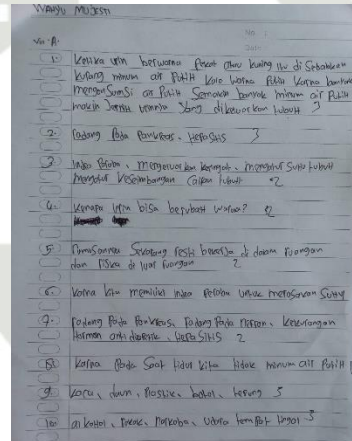 WAHYU MUJESTI
No :
1. Ketika urin berwarna Pekat atau kuning itu di Sebabkan
kurang minum air Putih kalo warna Putih karna banyak
mengonSumSi air Putih Semakin banyak minum air Putih
makin Jernih urinnia Yang dikeluarkan tubuh 3
2. radang Pada Pankreas, HePatitis 3
3. indra Peraba, mengeluarkan keringat, mengatur Suhu tubuh
mengatur keseimbangan Cairan tubuh 2
4. kenapa urin bisa berubah warna? 2
5. Sekarang resti berada di dalam ruangan
dan riska di luar ruangan 2
6. karna kita memiliki indra Peraba untuk merasakan Suhu
7. radang Pada Pankreas, radang Pada , kekurangan
Hormon anti diuretik, 2
8. karna Pada Saat tidur kita tidak minum air Putih
9. kaca, daun, Plastik, botol, 3
10. alkohol, rokok, narkoba, udara tempat tinggal 3